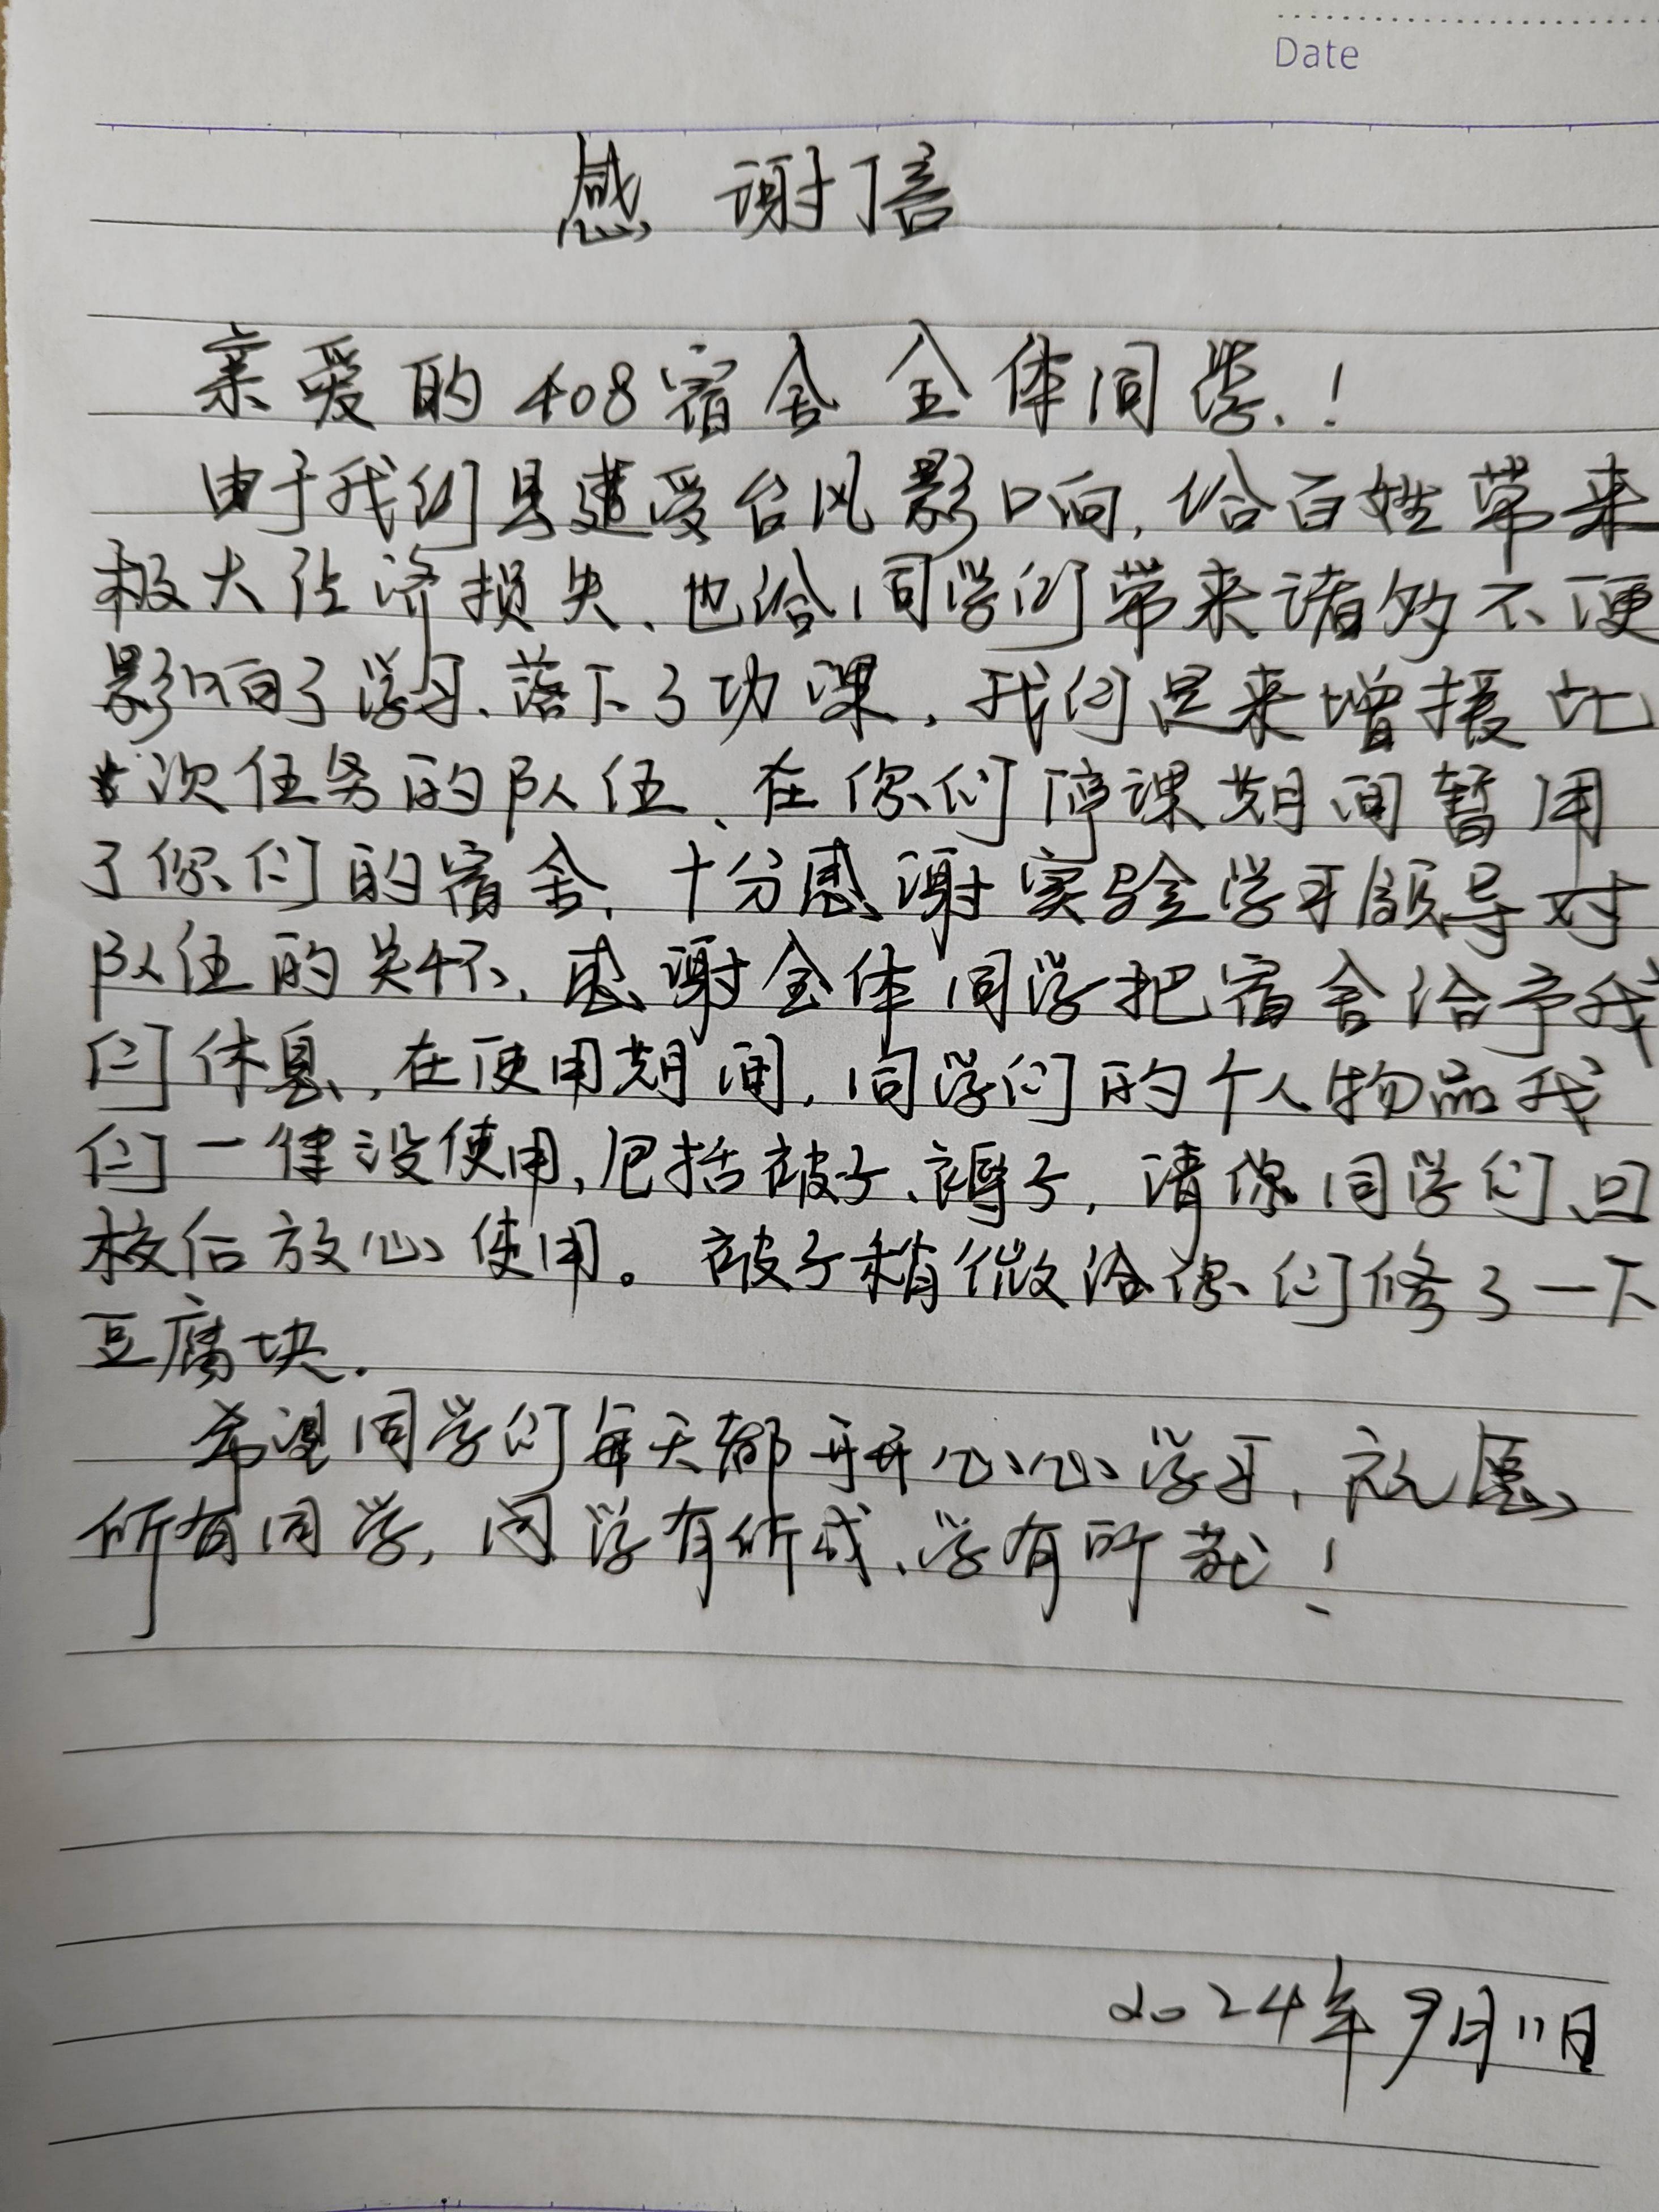 Date
感谢信
亲爱的408宿舍全体同学！
由于我们县遭受台风影响，给百姓带来
极大经济损失、也给同学们带来诸多不便
影响了学习、落下了功课，我们是来增援此
次任务的队伍、在你们停课期间暂用
了你们的宿舍，十分感谢实验学习领导对
队伍的关怀，感谢全体同学把宿舍给予我
们休息，在使用期间，同学们的个人物品我
们一律没使用，包括被子、褥子，请你同学们回
校后放心使用。被子稍微给你们修了一下
豆腐块.
希望同学们每天都开开心心学习，祝愿
所有同学，同学有所成、学有所就！
2024年9月11日